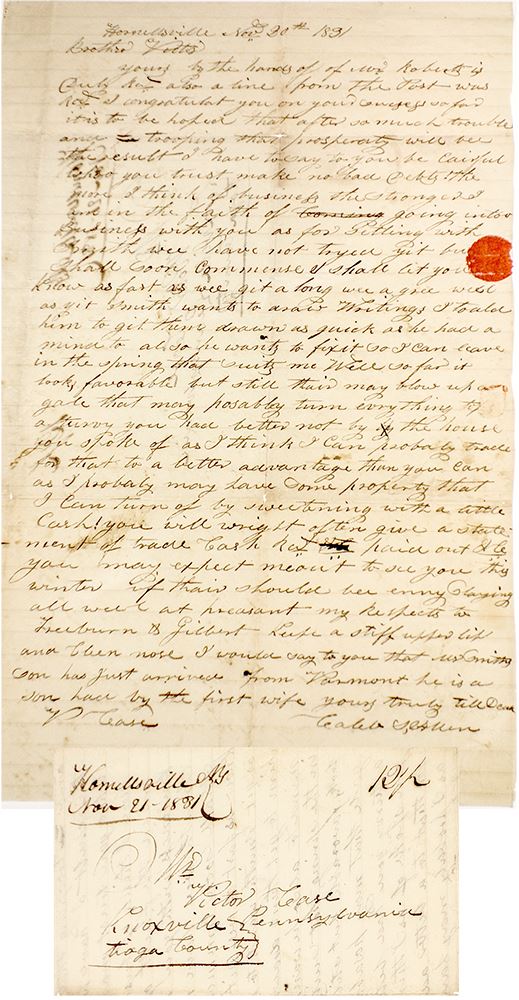 Hornellsville Nov 20th 1831
Brother Victor
yours by the hands of of Mr Roberts is
Duly Recd also a line from the Post was
Recd I congratulate you on your sucsess so far
it is to be hoped that after so much trouble
and trooping that prosperity will bee
the result I have to say to you be cairful
who you trust make no bad Debts the
more I think of business the stronger I
am in the faith of going into
Business with you as for Sittling with
Smith wee have not tryed yit but
shall soon Commense I shall let you
know as fast as wee git a long wee a gree well
as yit Smith wants to draw Writings I tould
him to git them drawn as quick as he had a
mind to also he wants to fix it so I can leave
in the spring that suits me Well so far it
looks favorable but still thair may blow up a
gale that may posably turn evrything to
a turvy you had better not by the house
you spoke of as I think I can probaly trade
for that to a better advantage than you can
as I probaly may have some property that
I can turn of by sweetening with a little
Cash! you will wright often give a state
ment of trade Cash Recd paid out &c
you may expect me out to see you this
winter if thair should bee enny slaying
all well at preasant my Respects to
Freeburn & Gilbert Keep a stiff upper lip
and Clean nose I would say to you that Mr Smiths
son has just arrived from Varmont he is a
son had by the first wife yours truly till Death
V Case Caleb
Hornellsville NY
Nov 21 - 1831
12½
Mr
Victor Case
Knoxville Pennsylvania
tioga County